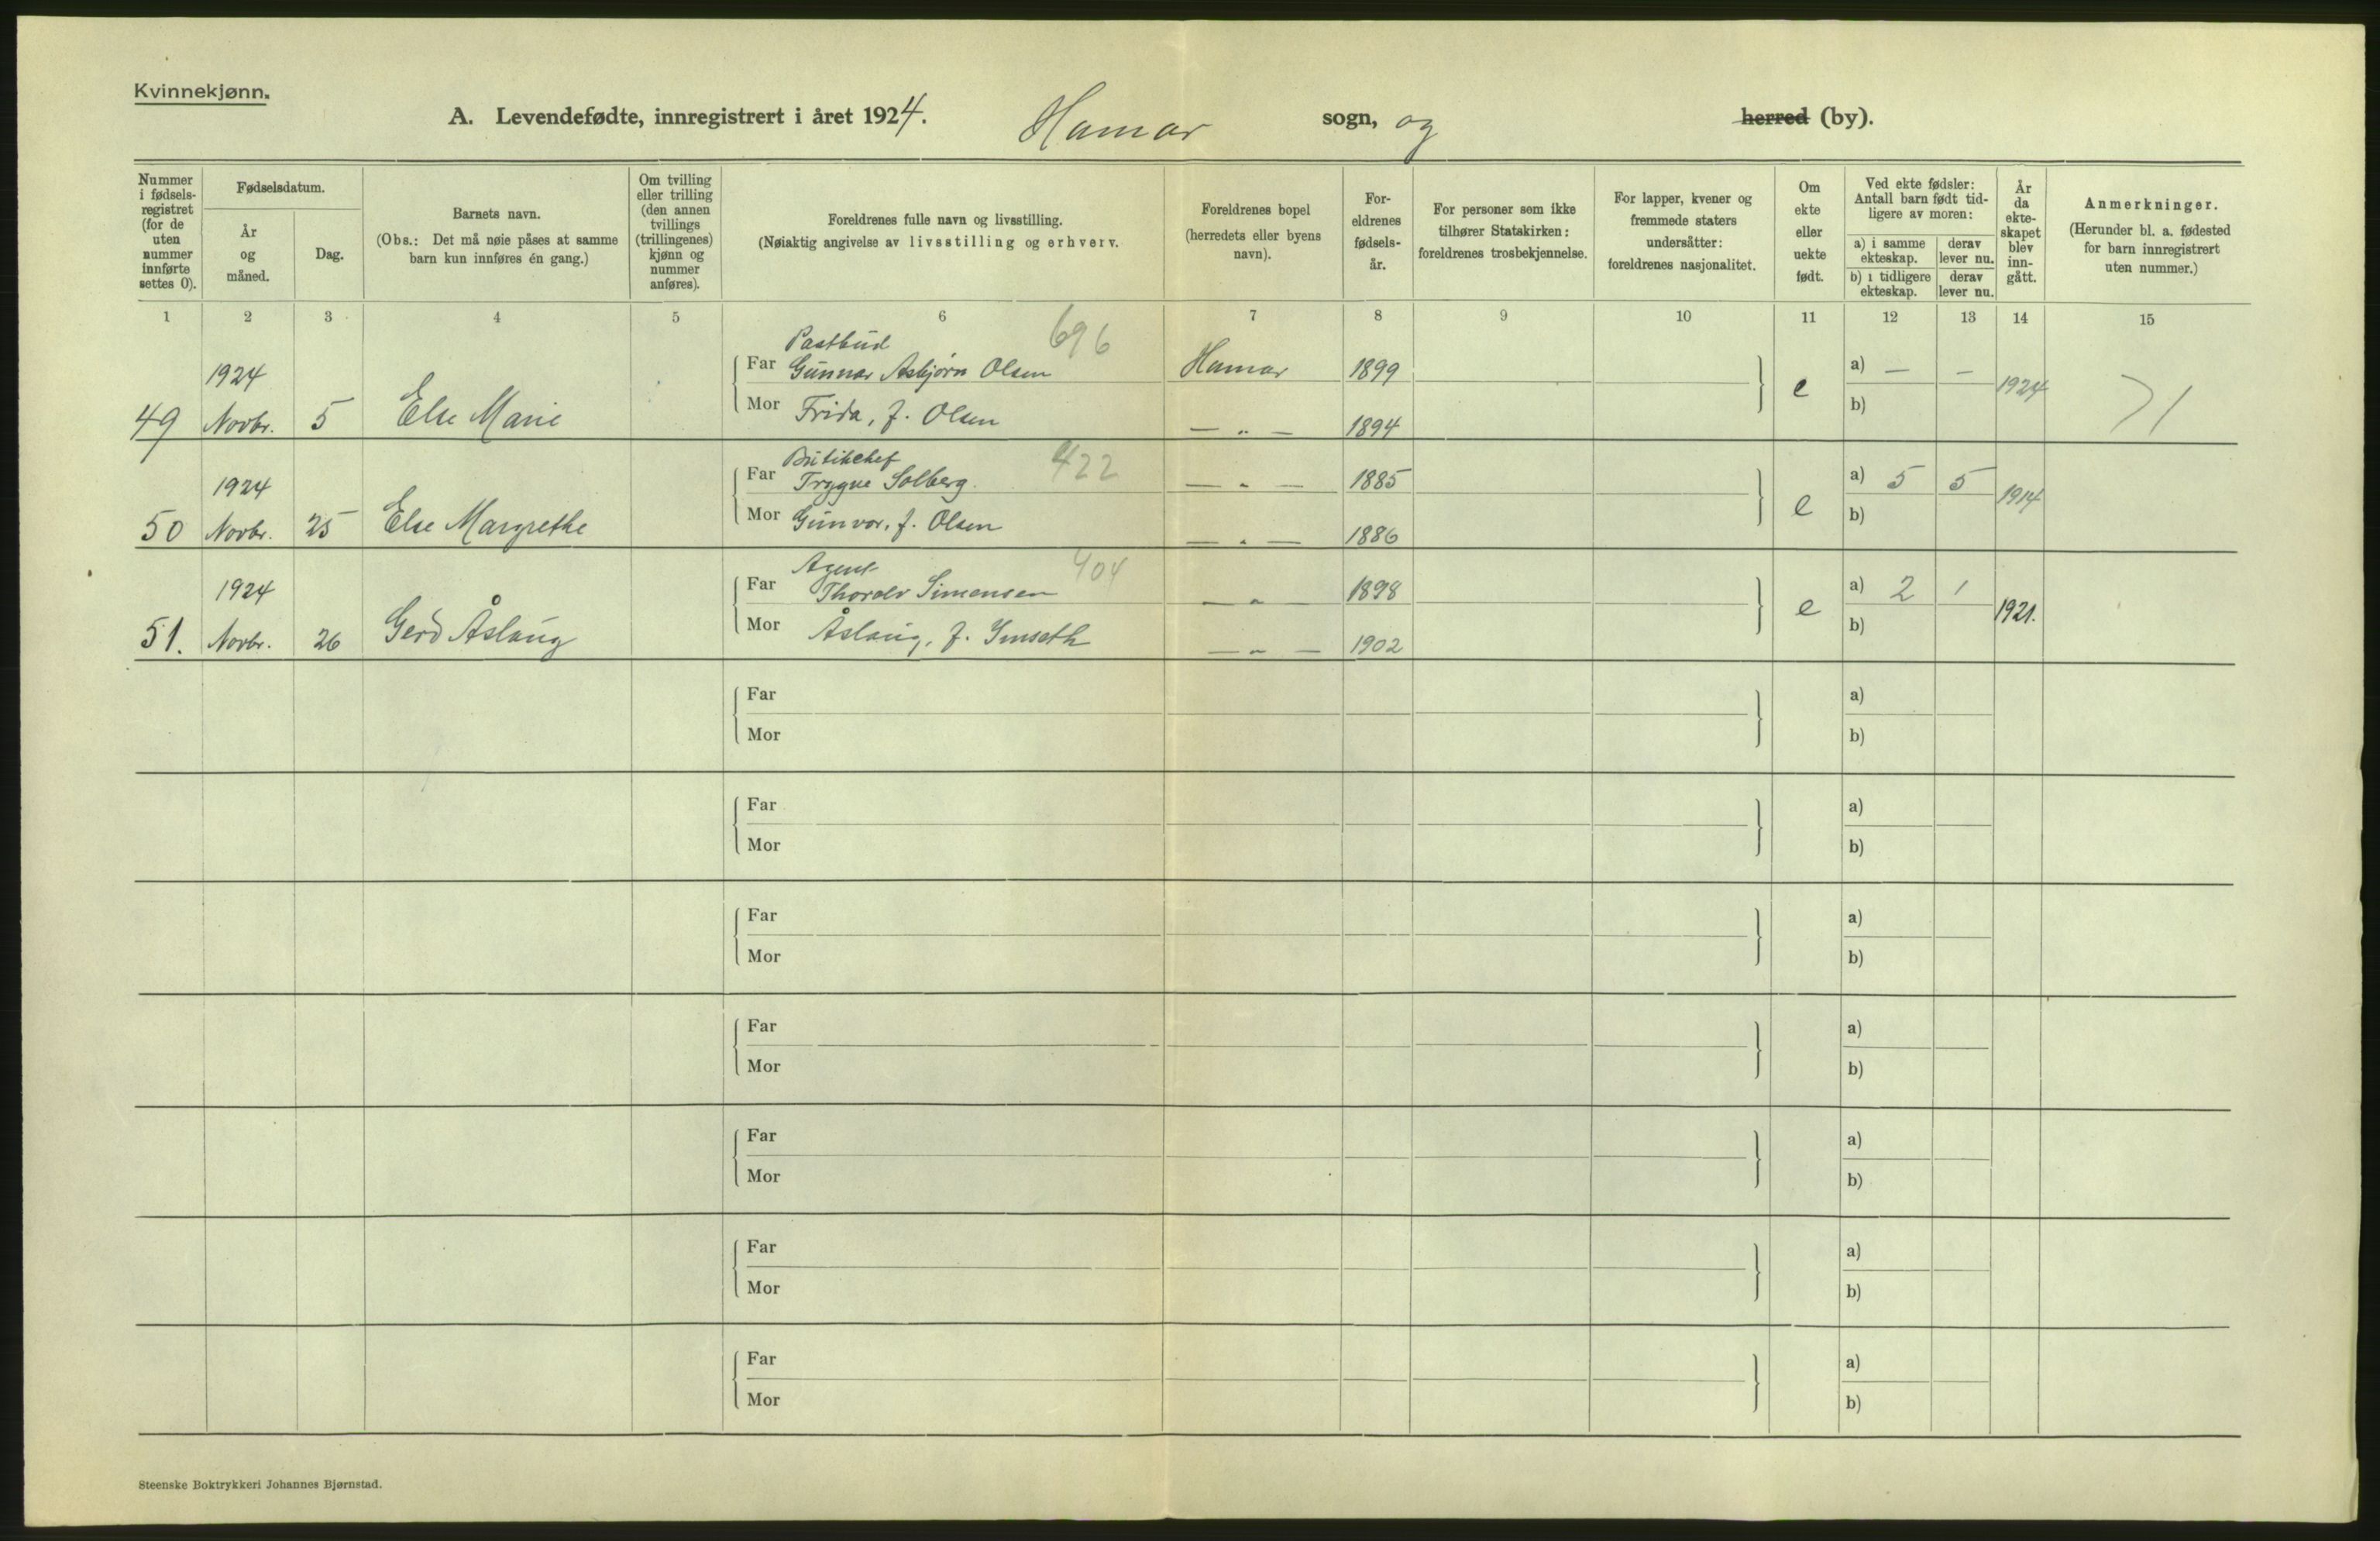 Kvinnekjønn.
A. Levendefødte, innregistrert i året 1924. Hamar sogn, og herred (by).
Nummer i fødsels-registret (for de uten nummer innførte settes 0).
Fødselsdatum.
År og måned.
Dag.
Barnets navn.
(Obs.: Det må nøie påses at samme barn kun innføres én gang.)
Om tvilling eller trilling (den annen tvillings (trillingenes) kjønn og nummer anføres).
Foreldrenes fulle navn og livsstilling.
(Nøiaktig angivelse av livsstilling og erhverv.
Foreldrenes bopel (herredets eller byens navn).
For-eldrenes fødsels-år.
For personer som ikke tilhører Statskirken: foreldrenes trosbekjennelse.
For lapper, kvener og fremmede staters undersåtter: foreldrenes nasjonalitet.
Om ekte eller uekte født.
Ved ekte fødsler: Antall barn født tid-ligere av moren:
a) i samme ekteskap.
derav lever nu.
b) i tidligere ekteskap.
derav lever nu.
År da ekte-skapet blev inn-gått.
Anmerkninger.
(Herunder bl. a. fødested for barn innregistrert uten nummer.)
1 2 3 4 5 6 7 8 9 10 11 12 13 14 15
Postbud 696
1924 Far Gunnar Asbjørn Olsen Hamar 1899 a) — –
49 Novbr. 5 Else Marie Mor Frida, f. Olsen — „ — 1894 e b) 1924
Butikchef 422
1924 Far Trygve Solberg. — „ — 1885 a) 5 5
50 Novbr. 25 Else Margrethe Mor Gunvor, f. Olsen — „ — 1886 e b) 1914
Agent 404
1924 Far Thoralv Simensen — „ — 1898 a) 2 1
51. Novbr. 26 Gerd Åslaug Mor Åslaug, f. Imseth — „ — 1902 e b) 1921.
Far a)
Mor b)
Far a)
Mor b)
Far a)
Mor b)
Far a)
Mor b)
Far a)
Mor b)
Far a)
Mor b)
Far a)
Mor b)
Steenske Boktrykkeri Johannes Bjørnstad.